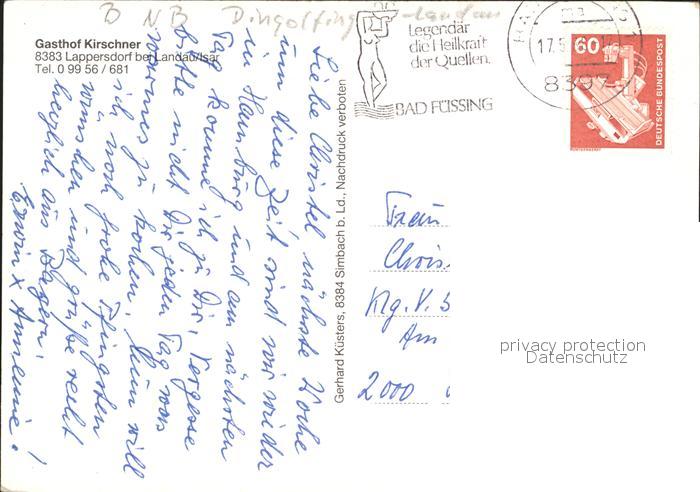 B NB Dingolfing-Landau
Gasthof Kirschner
8383 Lappersdorf bei Landau/Isar
Tel. 0 99 56 / 681
Legendär
die Heilkraft
der Quellen.
BAD FÜSSING
17.5
8397
60
DEUTSCHE BUNDESPOST
Gerhard Küsters, 8384 Simbach b. Ld., Nachdruck verboten
Liebe Christel nächste Woche
um diese Zeit sind wir wieder
in Hamburg und am nächsten
Tag komme ich zu Dir. Vergesse
bitte nicht Dir jeden Tag was
warmes zu kochen. Nun will
ich noch frohe Pfingsten
wünschen und grüße recht
herzlich aus Bayern.
Erwin x Annemie!
Frau
Chris
Klg. V. 3
Am
2000
privacy protection
Datenschutz